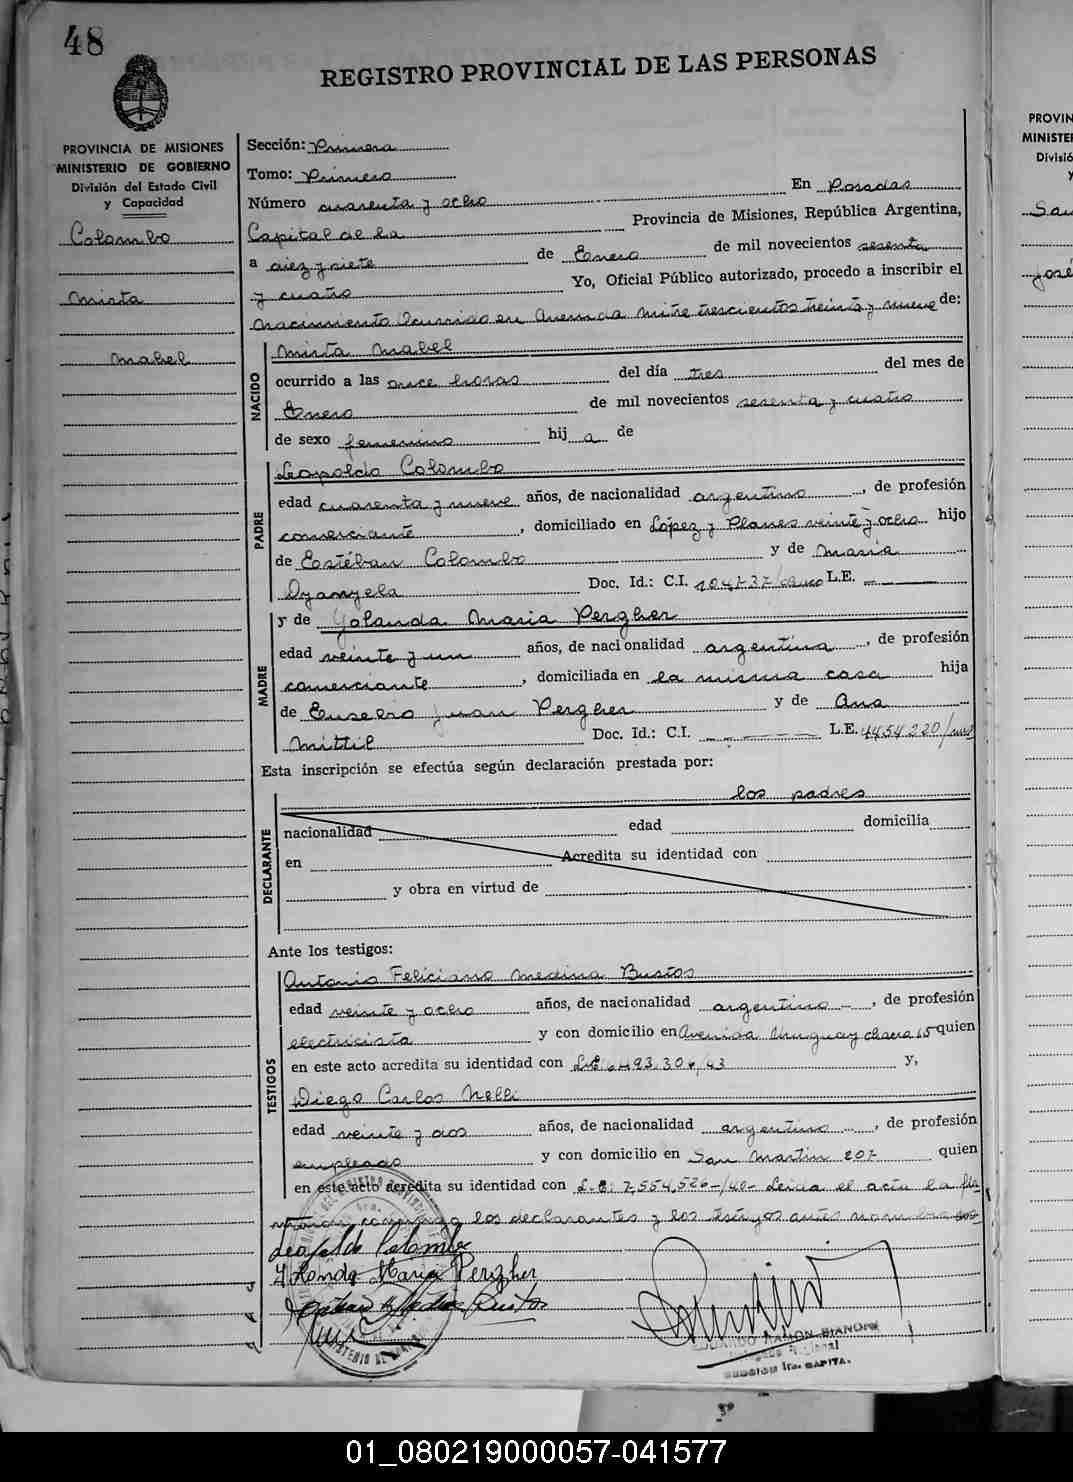 48
REGISTRO PROVINCIAL DE LAS PERSONAS
PROVINCIA DE MISIONES
MINISTERIO DE GOBIERNO
División del Estado Civil
y Capacidad
Colombo
Mirta
Mabel
Sección: Primera
Tomo: Primero
Número cuarenta y ocho En Posadas
Capital de la Provincia de Misiones, República Argentina,
a diez y siete de Enero de mil novecientos sesenta
y cuatro Yo, Oficial Público autorizado, procedo a inscribir el
nacimiento Ocurrido en Avenida Mitre trescientos treinta y nueve de:
NACIDO
Mirta Mabel
ocurrido a las once horas del día tres del mes de
Enero de mil novecientos sesenta y cuatro
de sexo femenino hij a de
PADRE
Leopoldo Colombo
edad cuarenta y nueve años, de nacionalidad argentino, de profesión
comerciante, domiciliado en López y Planes veinte y ocho hijo
de Estéban Colombo y de Maria
Oyanyela Doc. Id.: C.I. 104737/ L.E. —
MADRE
y de Yolanda Maria Pergher
edad veinte y un años, de nacionalidad argentina, de profesión
comerciante, domiciliada en la misma casa hija
de Eusebio Juan Pergher y de Ana
Mittil Doc. Id.: C.I. — L.E. 4454220/
Esta inscripción se efectúa según declaración prestada por:
los padres
DECLARANTE
nacionalidad edad domicilia
en Acredita su identidad con
y obra en virtud de
Ante los testigos:
TESTIGOS
Antonio Feliciano Medina Bustos
edad veinte y ocho años, de nacionalidad argentino, de profesión
electricista y con domicilio en Avenida Uruguay chacra 65 quien
en este acto acredita su identidad con L.E. 6493.304/43 y,
Diego Carlos Nelli
edad veinte y dos años, de nacionalidad argentino, de profesión
empleado y con domicilio en San Martin 207 quien
en este acto acredita su identidad con L.E: 7,554,526-/40- Leida el acta la fir
man conmigo los declarantes y los testigos antes nombrados
Leopoldo Colombo
Yolanda Maria Pergher
EDUARDO RAMON BIANCHI
SECCION 1ra. CAPITAL
PROVIN
MINISTE
Divisió
y
Sau
José
01_080219000057-041577